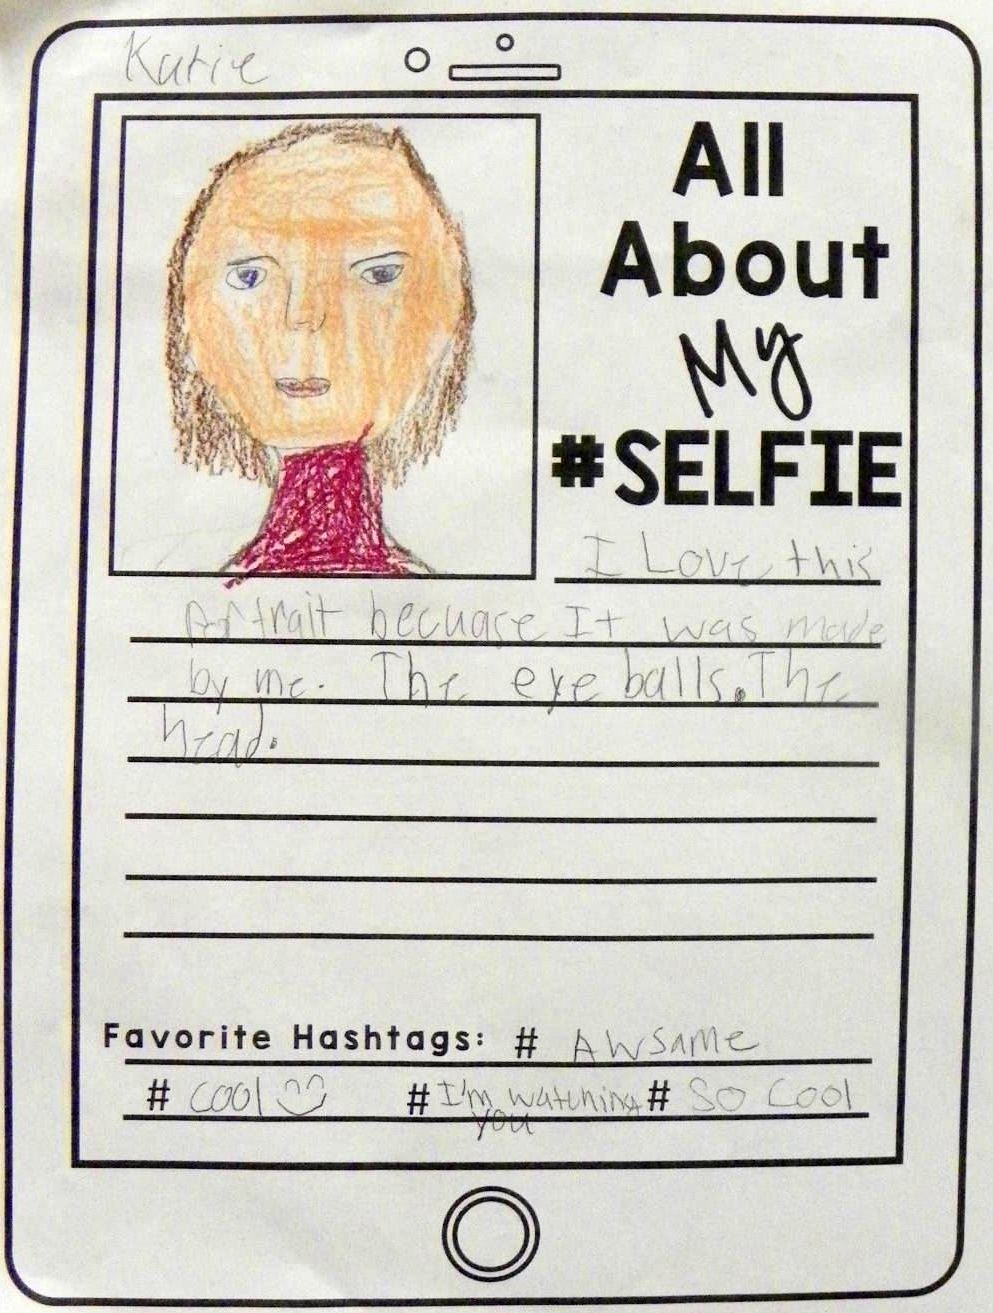 Katie
All
About
My
#SELFIE
I Love this
Portrait becuase It was made
by me. The eye balls. The
head.
Favorite Hashtags: # Awsame
# cool # I'm watching # So Cool
you